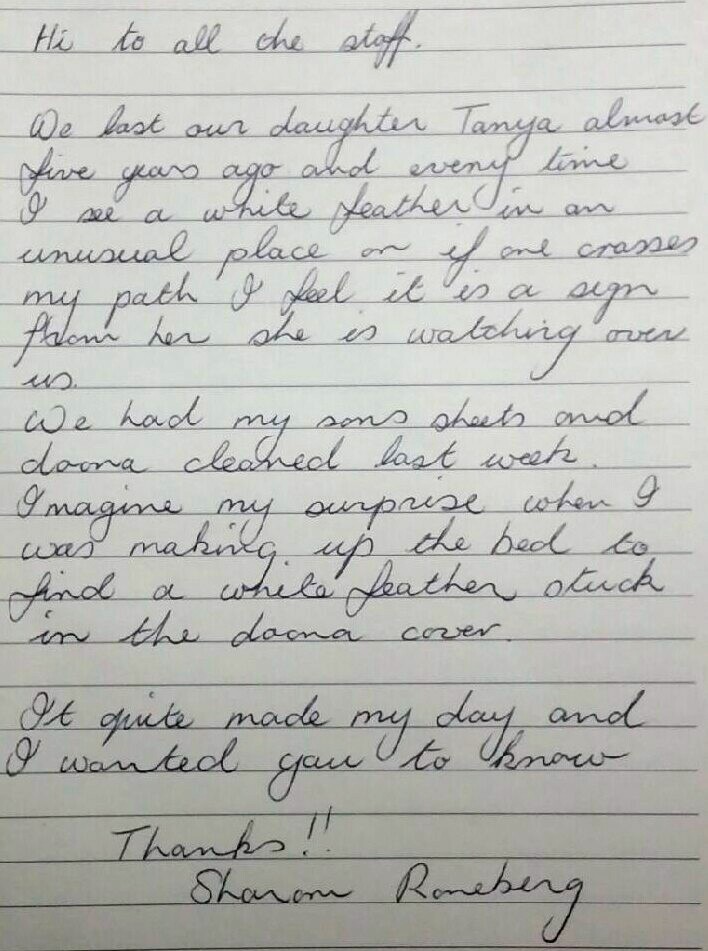 Hi to all the staff.
We lost our daughter Tanya almost
five years ago and every time
I see a white feather in an
unusual place or if one crosses
my path I feel it is a sign
from her she is watching over
us.
We had my sons sheets and
doona cleaned last week.
Imagine my surprise when I
was making up the bed to
find a white feather stuck
in the doona cover.
It quite made my day and
I wanted you to know
Thanks!!
Sharon Roneberg